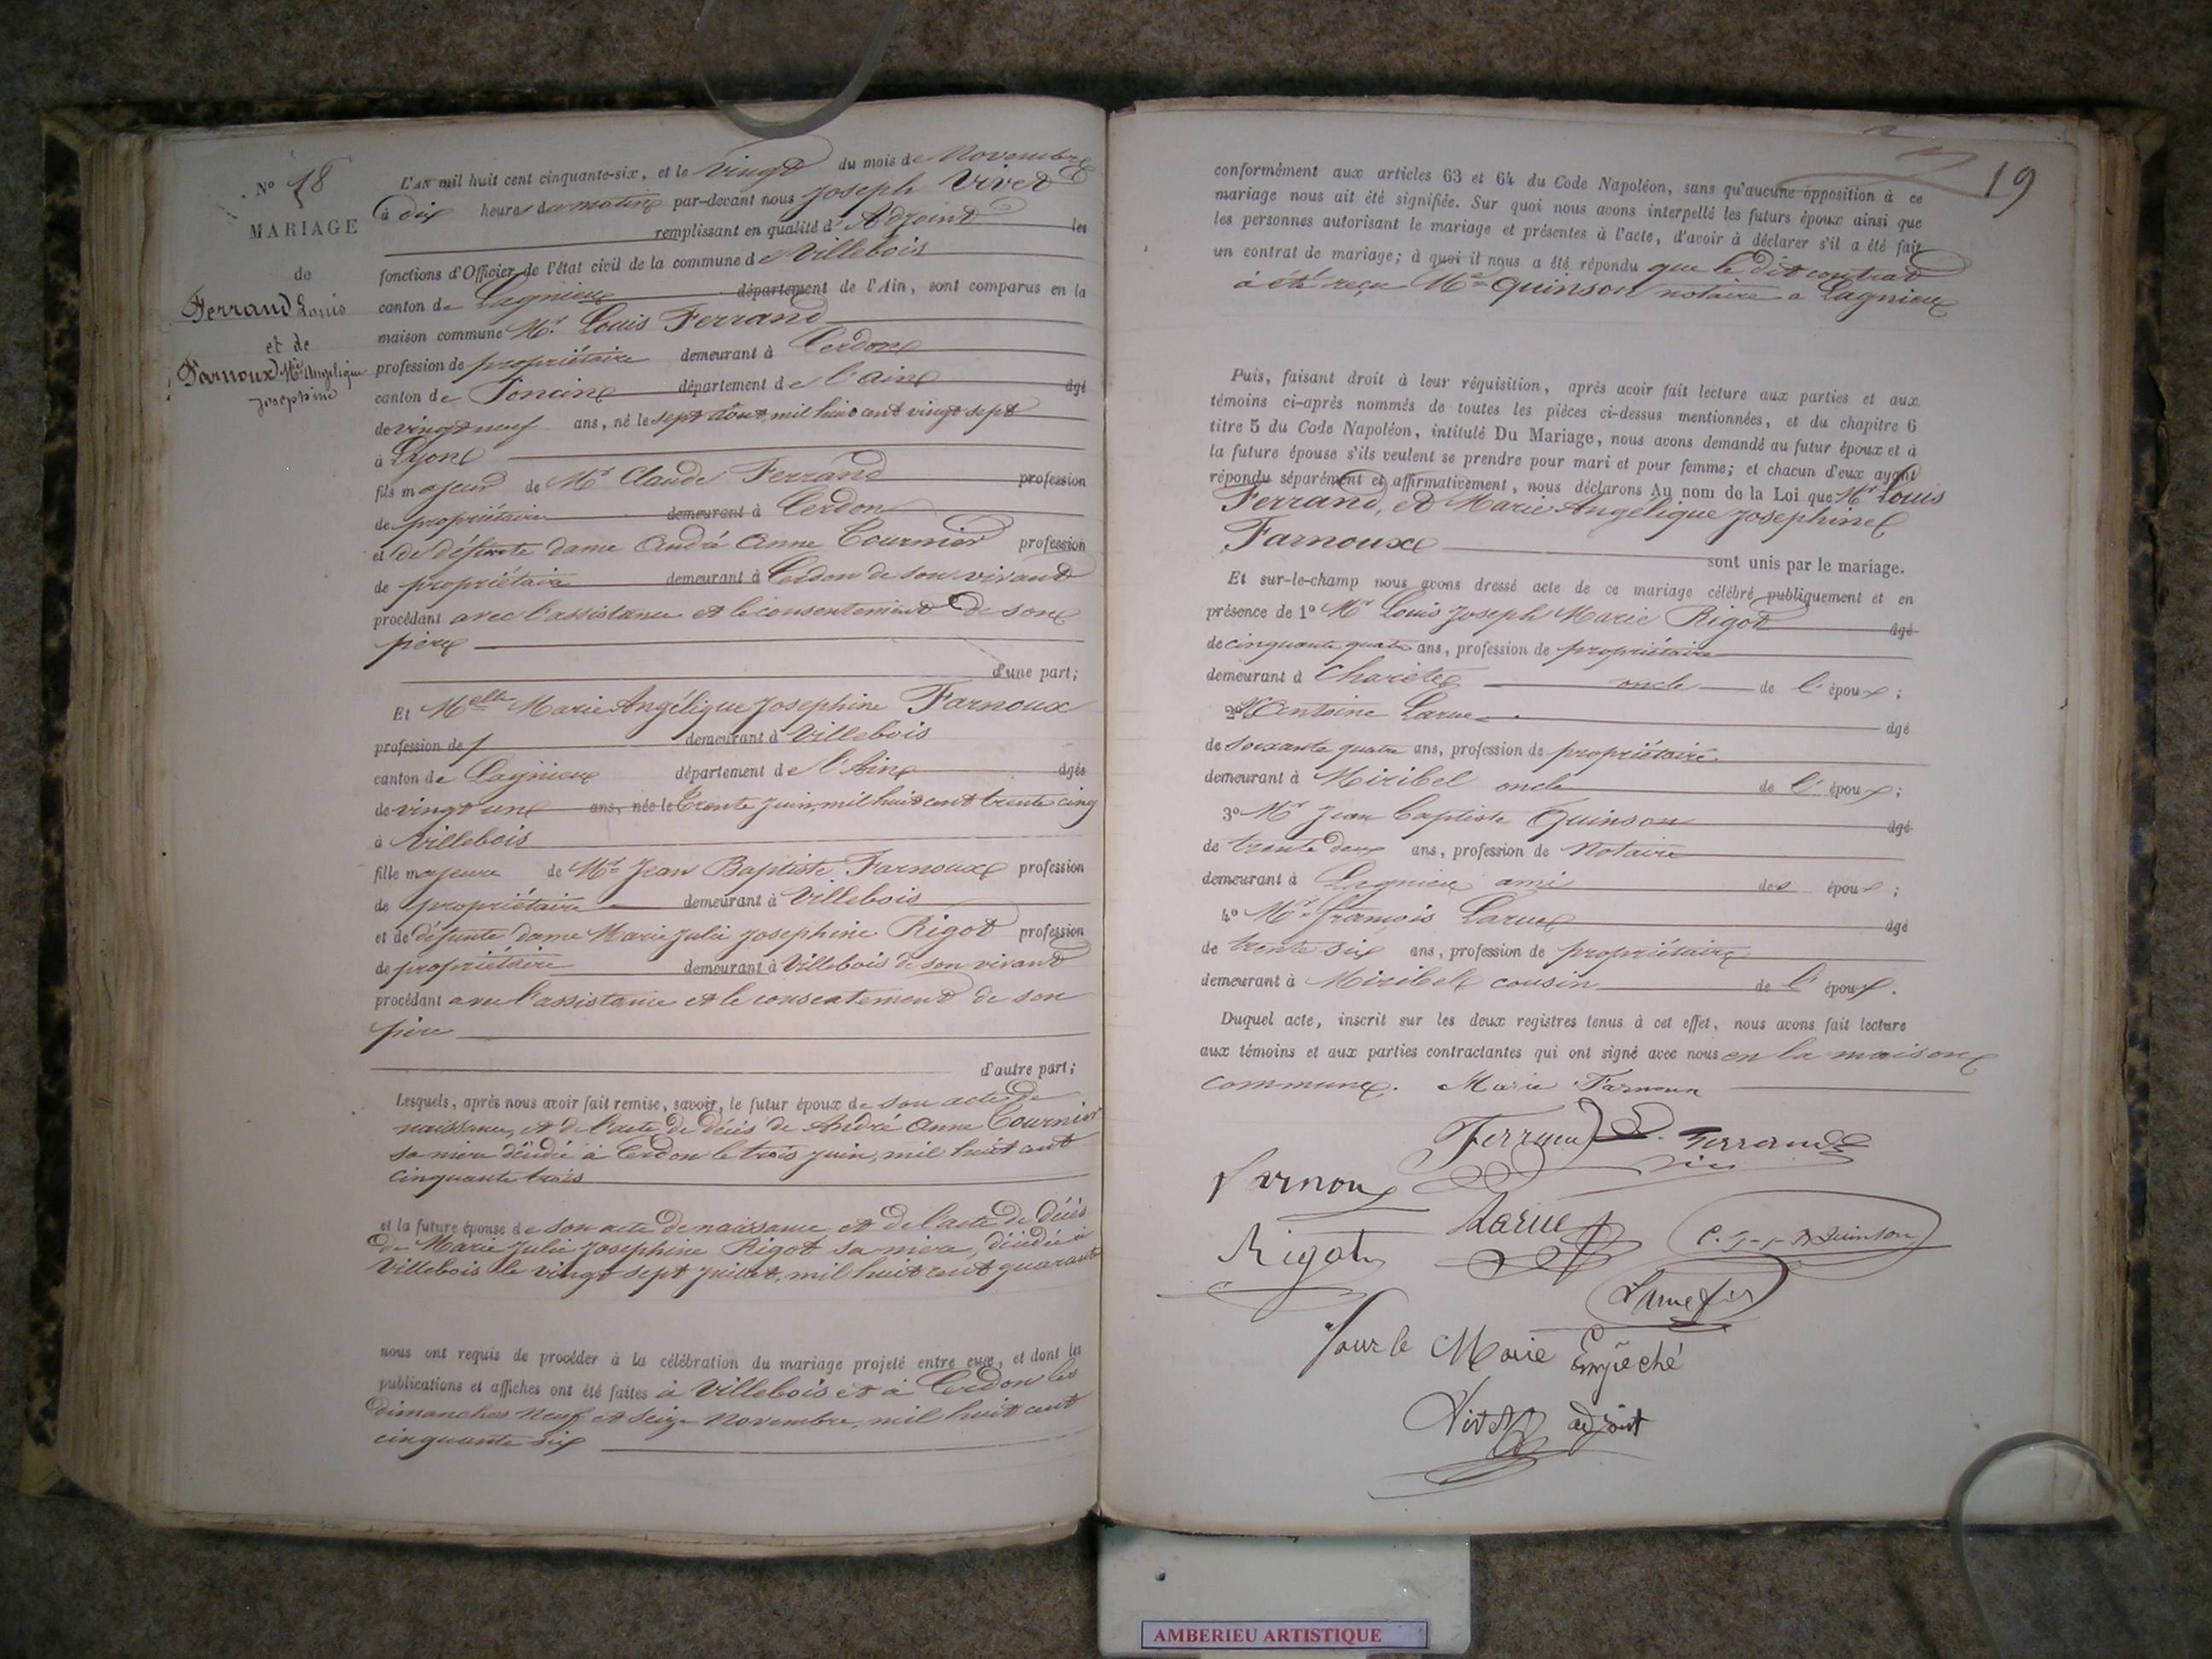 N° 18
MARIAGE
de
Ferrand Louis
et de
Farnoux Mie Angélique
Josephine
L'AN mil huit cent cinquante-six, et le vingt du mois de Novembre
à dix heures du matin par-devant nous Joseph Vivet
remplissant en qualité d'Adjoint les
fonctions d'Officier de l'état civil de la commune de Villebois
canton de Lagnieu département de l'Ain, sont comparus en la
maison commune Mr Louis Ferrand
profession de propriétaire demeurant à Cerdon
canton de Poncin département de l'ain âgé
de vingt neuf ans, né le sept août mil huit cent vingt sept
à Lyon
fils majeur de Mr Claude Ferrand profession
de propriétaire demeurant à Cerdon
et de défunte dame André Anne Tournier profession
de propriétaire demeurant à Cerdon de son vivant
procédant avec l'assistance et le consentement de son
père
d'une part;
Et Melle Marie Angélique Josephine Farnoux
profession de demeurant à Villebois
canton de Lagnieu département de l'Ain âgée
de vingt un ans, née le trente juin, mil huit cent trente cinq
à Villebois
fille majeure de Mr Jean Baptiste Farnoux profession
de propriétaire demeurant à Villebois
et de défunte dame Marie Julie Josephine Rigot profession
de propriétaire demeurant à Villebois de son vivant
procédant avec l'assistance et le consentement de son
père
d'autre part;
Lesquels, après nous avoir fait remise, savoir, le futur époux de son acte de
naissance, et de l'acte de décès de André Anne Tournier
sa mère décédée à Cerdon le trois juin, mil huit cent
cinquante trois
et la future épouse de son acte de naissance et de l'acte de décès
de Marie Julie Josephine Rigot sa mère, décédée à
Villebois le vingt sept juillet, mil huit cent quarante
nous ont requis de procéder à la célébration du mariage projeté entre eux, et dont les
publications et affiches ont été faites à Villebois et à Cerdon les
dimanches neuf et seize Novembre, mil huit cent
cinquante six
19
conformément aux articles 63 et 64 du Code Napoléon, sans qu'aucune opposition à ce
mariage nous ait été signifiée. Sur quoi nous avons interpellé les futurs époux ainsi que
les personnes autorisant le mariage et présentes à l'acte, d'avoir à déclarer s'il a été fait
un contrat de mariage; à quoi il nous a été répondu que le dit contrat
a été reçu Me Quinson notaire a Lagnieu
Puis, faisant droit à leur réquisition, après avoir fait lecture aux parties et aux
témoins ci-après nommés de toutes les pièces ci-dessus mentionnées, et du chapitre 6
titre 5 du Code Napoléon, intitulé Du Mariage, nous avons demandé au futur époux et à
la future épouse s'ils veulent se prendre pour mari et pour femme; et chacun d'eux ayant
répondu séparément et affirmativement, nous déclarons Au nom de la Loi que Mr Louis
Ferrand, et Marie Angélique Josephine
Farnoux
sont unis par le mariage.
Et sur-le-champ nous avons dressé acte de ce mariage célébré publiquement et en
présence de 1° Mr Louis Joseph Marie Rigot âgé
de cinquante quatre ans, profession de propriétaire
demeurant à oncle de l'époux;
2° Antoine Larue âgé
de soixante quatre ans, profession de propriétaire
demeurant à Miribel oncle de l'époux;
3° Mr Jean Baptiste Quinson âgé
de trente deux ans, profession de Notaire
demeurant à Lagnieu ami des époux;
4° Mr françois Larue âgé
de trente six ans, profession de propriétaire
demeurant à Miribel cousin de l'époux.
Duquel acte, inscrit sur les deux registres tenus à cet effet, nous avons fait lecture
aux témoins et aux parties contractantes qui ont signé avec nous en la maison
commune. Marie Farnoux
Ferrand Ferrand
Farnoux
Larue
Rigot
Quinson
Larue fils
Pour le Maire Empêché
Vivet adjoint
AMBERIEU ARTISTIQUE